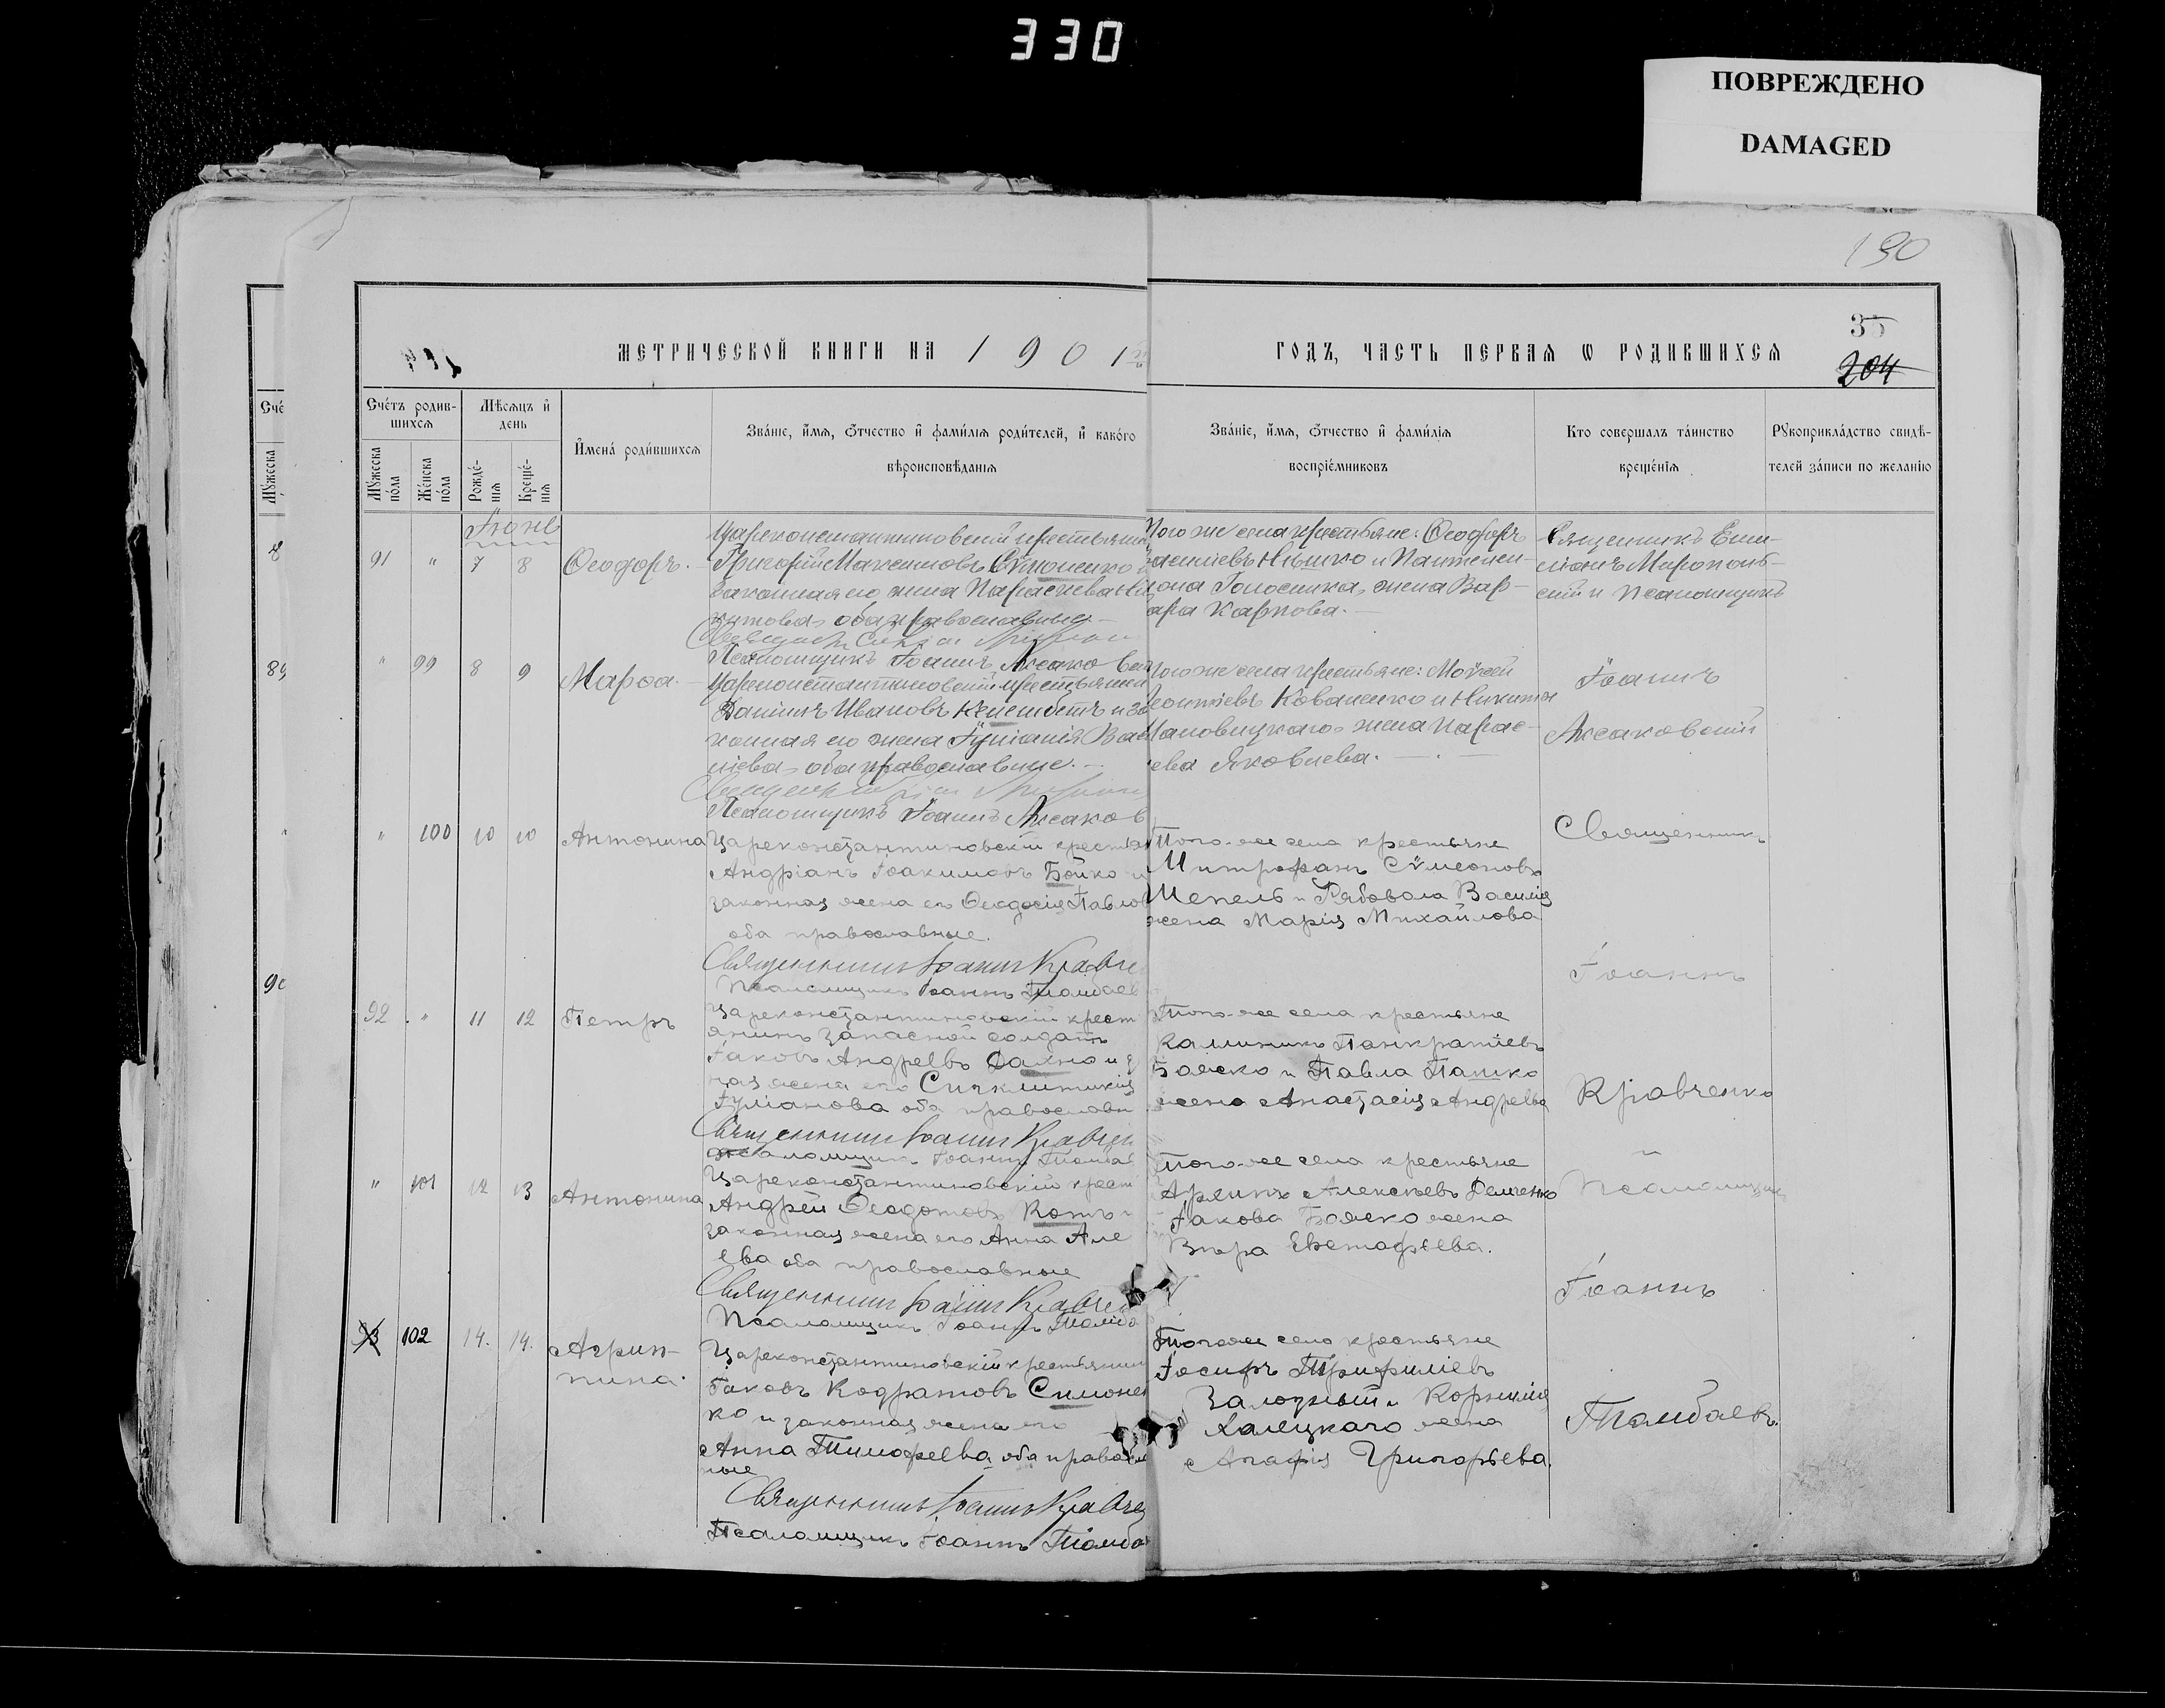 330
ПОВРЕЖДЕНО
DAMAGED
190
35
204
МЕТРИЧЕСКОЙ КНИГИ НА 1901
ГОДЪ, ЧАСТЬ ПЕРВАЯ Ѡ РОДИВШИХСЯ
Счетъ родив-
шихся
Мѣсяцъ и
день
Мужеска
пола
Женска
пола
Рожде-
нія
Креще-
нія
Имена родившихся
Званіе, имя, отчество и фамилія родителей, и какого
вѣроисповѣданія
Званіе, имя, отчество и фамилія
воспріемниковъ
Кто совершалъ таинство
крещенія
Рукоприкладство свидѣ-
телей записи по желанію
91 " 7 8 Ѳеодоръ.
Цареконстантиновскій крестьянин
Григорій Максимовъ Сѵмоненко
законная его жена Параскева Ни
китова, оба православные.
Псаломщикъ Іоаннъ Аксаков
Того же села крестьяне: Ѳеодоръ
и Пантелеи-
жена Вар-
вара Карпова.
Священникъ
и Псаломщикъ
Іоаннъ
Аксаковскій
" 99 8 9 Марѳа.
Цареконстантиновскій крестьянин
Даніилъ Ивановъ и за
конная его жена Іуліанія Васи
ліева, оба православные.
Псаломщикъ Іоаннъ Аксаков
Того же села крестьяне: Моѵсей
Леонтіевъ Коваленко и Никиты
жена Парас-
кева Яковлева.
" 100 10 10 Антонина
Цареконстантиновскій крестья
Андріанъ Іоакимовъ Бойко и
законная жена его Ѳеодосія Павлов
оба православные.
Священникъ Іоаннъ Кравче
Псаломщикъ Іоаннъ Тамбаев
Того-же села крестьяне
Митрофанъ Сѵмеоновъ
Шепель и Рябовола Василія
жена Марія Михайлова
Священникъ
Іоаннъ
Кравченко
92 " 11 12 Петръ
Цареконстантиновскій крест
янинъ запасной солдатъ
Іаковъ Андреевъ и з
ная жена его Сѵнклитикія
Іуліанова оба православн
Священникъ Іоаннъ Кравчен
Псаломщикъ Іоаннъ Тамба
Того-же села крестьяне
Каллиникъ Панкратіевъ
Божко и Павла Пашко
жена Анастасія Андреева
" 101 12 13 Антонина
Цареконстантиновскій крест
Андрей Ѳеодотовъ Котъ и
законная жена его Анна Але
ева оба православные
Священникъ Іоаннъ Кравчен
Псаломщикъ Іоаннъ Тамба
Того-же села крестьяне
Алексѣевъ Демченко
Іакова Божко жена
Вѣра Евстафьева.
Псаломщикъ
Іоаннъ
Тамбаевъ.
93 102 14. 14. Агрип-
пина.
Цареконстантиновскій крестьянин
Іаковъ Кодратовъ Симонен
ко и законная жена его
Анна Тимофеева, оба правосла
ные
Священникъ Іоаннъ Кравчен
Псаломщикъ Іоаннъ Тамба
Того-же села крестьяне
Іосифъ Трифиліевъ
Залозный и Корнилія
Халецкаго жена
Агафія Григорьева.